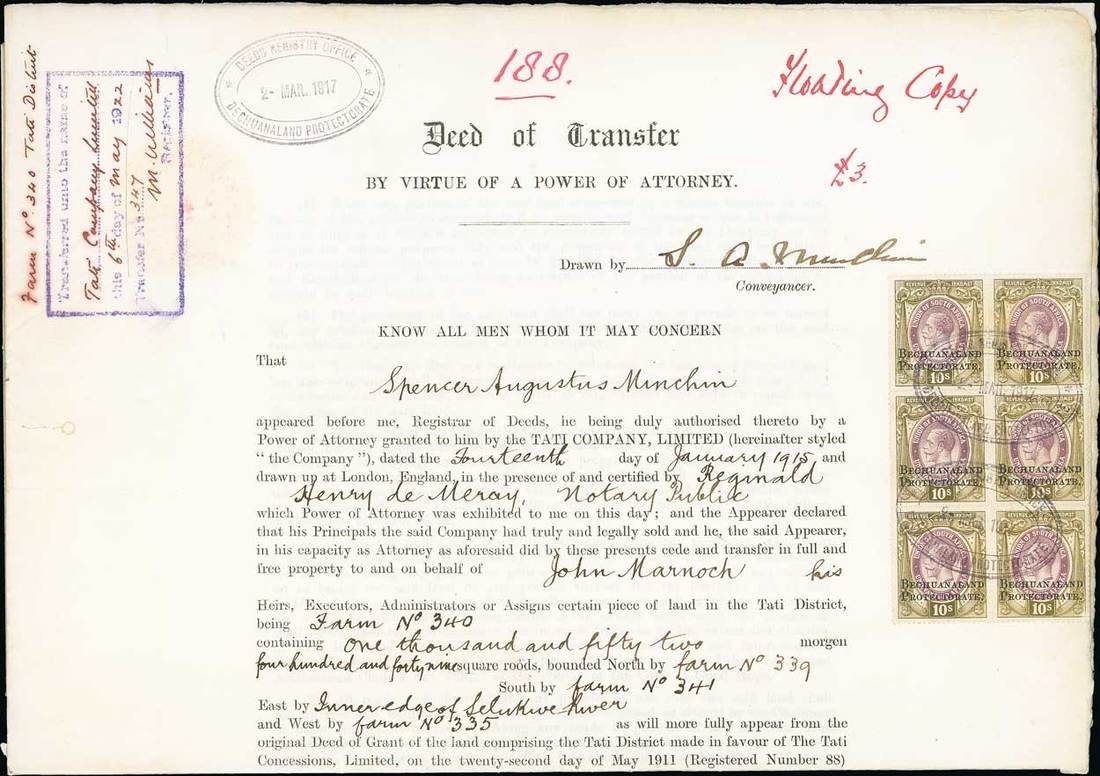 Farm No. 340 Tati District
Transferred unto the name of
Tati Company Limited
this 6th day of May 1922
Transfer No. 347
M. Williams
Registrar.
DEEDS REGISTRY OFFICE
2- MAR. 1917
BECHUANALAND PROTECTORATE
188.
Floading Copy
£3.
Deed of Transfer
BY VIRTUE OF A POWER OF ATTORNEY.
Drawn by S. A. Minchin
Conveyancer.
KNOW ALL MEN WHOM IT MAY CONCERN
That
Spencer Augustus Minchin
appeared before me, Registrar of Deeds, he being duly authorised thereto by a
Power of Attorney granted to him by the TATI COMPANY, LIMITED (hereinafter styled
“ the Company ”), dated the Fourteenth day of January 1915 and
drawn up at London, England, in the presence of and certified by Reginald
Henry de Meray, Notary Public
which Power of Attorney was exhibited to me on this day ; and the Appearer declared
that his Principals the said Company had truly and legally sold and he, the said Appearer,
in his capacity as Attorney as aforesaid did by these presents cede and transfer in full and
free property to and on behalf of John Marnoch his
Heirs, Executors, Administrators or Assigns certain piece of land in the Tati District,
being Farm No 340
containing One thousand and fifty two morgen
four hundred and forty nine square roods, bounded North by farm No 339
South by farm No 341
East by Inner edge of Selukwe River
and West by farm No 335 as will more fully appear from the
original Deed of Grant of the land comprising the Tati District made in favour of The Tati
Concessions, Limited, on the twenty-second day of May 1911 (Registered Number 88)
REVENUE INKOMST
UNION OF SOUTH AFRICA
BECHUANALAND
PROTECTORATE.
10s
REVENUE INKOMST
UNION OF SOUTH AFRICA
BECHUANALAND
PROTECTORATE.
10s
UNION OF SOUTH AFRICA
BECHUANALAND
PROTECTORATE.
10s
UNION OF SOUTH AFRICA
BECHUANALAND
PROTECTORATE.
10s
UNION OF SOUTH AFRICA
BECHUANALAND
PROTECTORATE.
10s
UNION OF SOUTH AFRICA
BECHUANALAND
PROTECTORATE.
10s